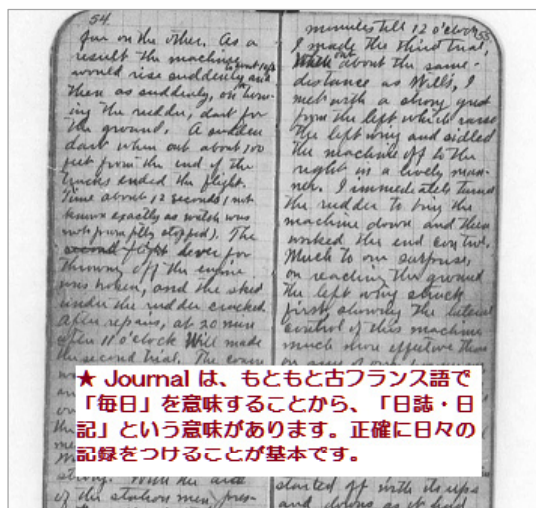 54.
far on the other. As a
result the machine
to about 10 ft.
would rise suddenly and
then as suddenly, on turn-
ing the rudder, dart for
the ground. A sudden
dart when out about 100
feet from the end of the
tracks ended the flight.
Time about 12 seconds (not
known exactly as watch was
not promptly stopped). The
lever for
throwing off the engine
was broken, and the skid
under the rudder cracked.
After repairs, at 20 min
after 11 o'clock Will made
the second trial. The course
strong. With the aid
of the station men, pres-
55
minutes till 12 o'clock
I made the third trial,
When out about the same
distance as Will's, I
met with a strong gust
from the left which raised
the left wing and sidled
the machine off to the
right in a lively man-
ner. I immediately turned
the rudder to bring the
machine down and then
worked the end control.
Much to our surprise,
on reaching the ground
the left wing struck
first, showing the lateral
control of this machine
much more effective than
on any of our
started off with its ups
and downs as it had
★ Journal は、もともと古フランス語で
「毎日」を意味することから、「日誌・日
記」という意味があります。正確に日々の
記録をつけることが基本です。